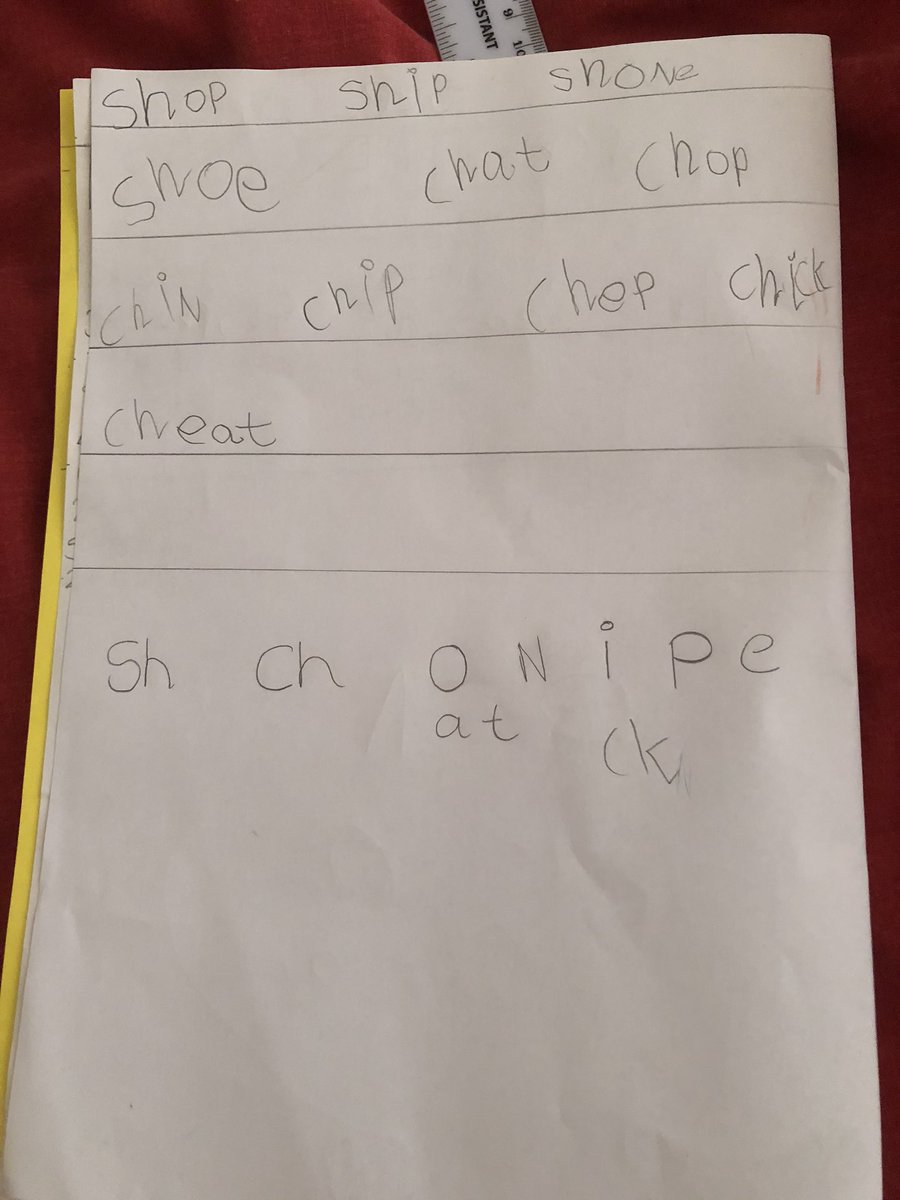 SISTANT 9 10
Shop ship shoNe
shoe chat chop
chiN chip chep chick
cheat
Sh Ch O N i P e
at ck